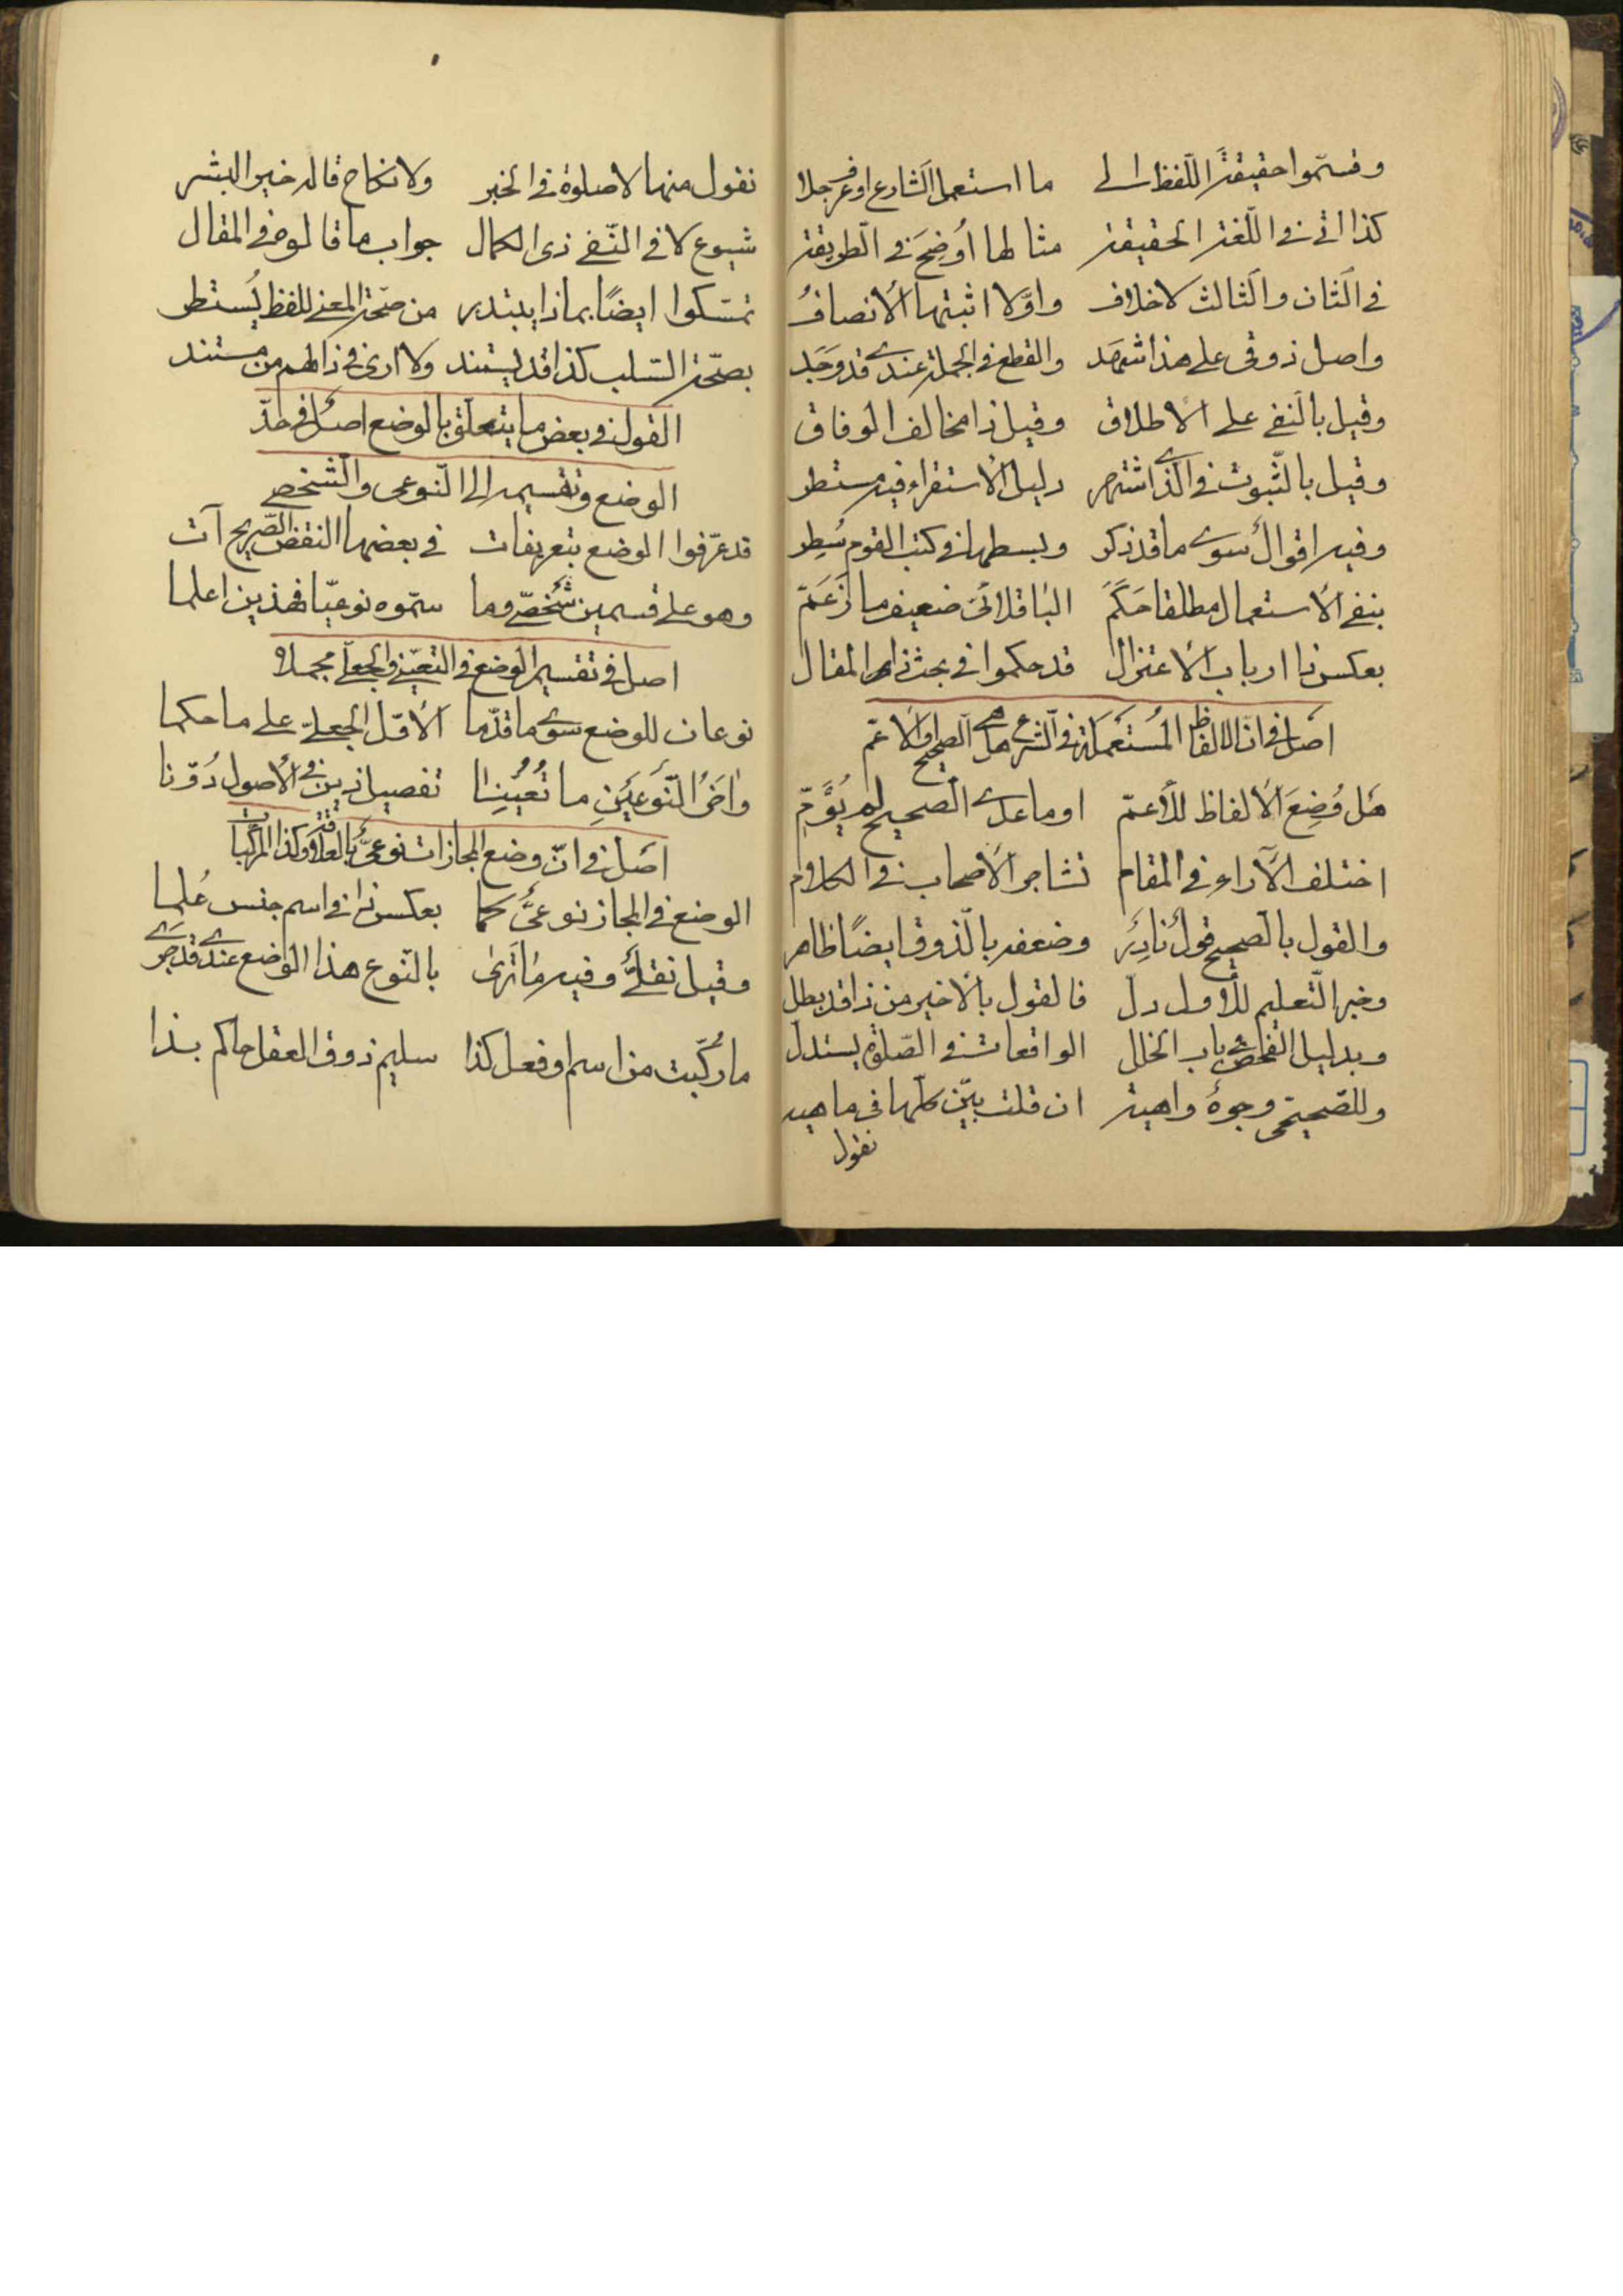 وقسّموا حقيقة اللّفظ الى ما استعمل الشارع او عرف جلا
كذا اتى فى اللّغة الحقيقة مثالها أُوضِحَ فى الطريقة
فى الثان والثالث لا خلاف واوّلا اثبتها الانصافُ
واصل ذوقى على هذا شهد والقطع فى الجملة عندى قد وجد
وقيل بالنفى على الاطلاق وقيل ذا مخالف الوفاق
وقيل بالثّبوت فى الّذى اشتهر دليل الاستقراء فيه مستطر
وفيه اقوال سوى ما قد ذكر وبسطها فى كتب القوم سُطِر
بنفى الاستعمال مطلقا حَكَمَ الباقلانىّ ضعيف ما زَعَمَ
بعكس ذا ارباب الاعتزال قد حكموا فى بحث ذا المقال
اصل فى انّ الالفاظ المُستَعمَلة فى الشرع هل هى الصحيح او الاعمّ
هَل وُضِعَ الالفاظ للأعمّ او ما عدى الصحيح لم يُؤَمِّ
اختلف الآراء فى المقام تشاجر الاصحاب فى الكلام
والقول بالصحيح قول نادر وضعفه بالذوق ايضًا ظاهر
وخبر التّعليم للأول دلّ فالقول بالاخير من ذا قد بطل
وبدليل الفحص فى باب الخلل الواقعات فى الصّلوة يستدل
وللصّحيحى وجوهٌ واهية ان قلت بيّن كلّها فى ماهيه
نقول
نقول منها لا صلوة فى الخبر ولا نكاح قاله خير البشر
شيوع لا فى النّفى ذى الكمال جواب ما قالوه فى المقال
تمسّكوا ايضًا بماذا يبتدر من صحّة المعنى للفظ يُستطر
بصحّة السّلب كذا قد يستند ولا ارى فى ذا لهم من مستند
القول فى بعض ما يتعلّق بالوضع اصل فى حدّ
الوضع وتقسيمه الى النّوعى والشّخصى
قد عرّفوا الوضع بتعريفات فى بعضها النقض الصّريح آت
وهو على قسمين شخصّى وما سمّوه نوعيّا فهذين اعلما
اصل فى تقسيم الوضع فى التعيّنى والجعلى مجملا
نوعان للوضع سوى ما قدّما الأوّل الجعلىّ على ما حكما
واخَرُ النّوعَينِ ما تُعُيِّنا تفصيل ذين فى الأصول دُوّنا
اصل فى انّ وضع المجازات نوعىّ بالعلاقة وكذا المركّبات
الوضع فى المجاز نوعىّ كما بعكس ذا فى اسم جنس عُلِما
وقيل نقلىٌّ وفيه ما تَرى بالنّوع هذا الوضع عندى قد جَرى
ما رُكّبت من اسم او فعل كذا سليم ذوق العقل حاكم بذا